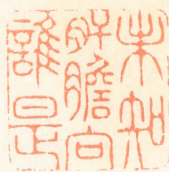 未知
肝膽向
誰是